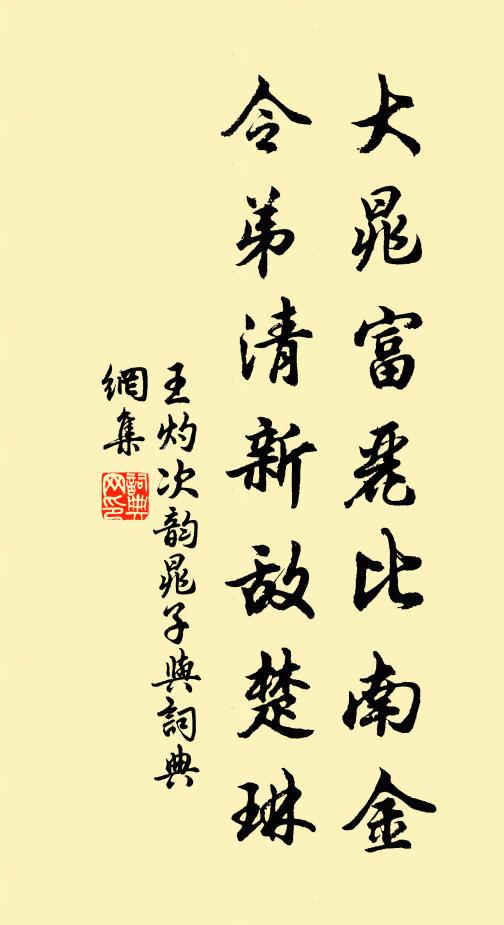 大晁富麗比南金
令弟清新敌楚琳
王灼次韵晁子與詞典
網集
詞典
网印